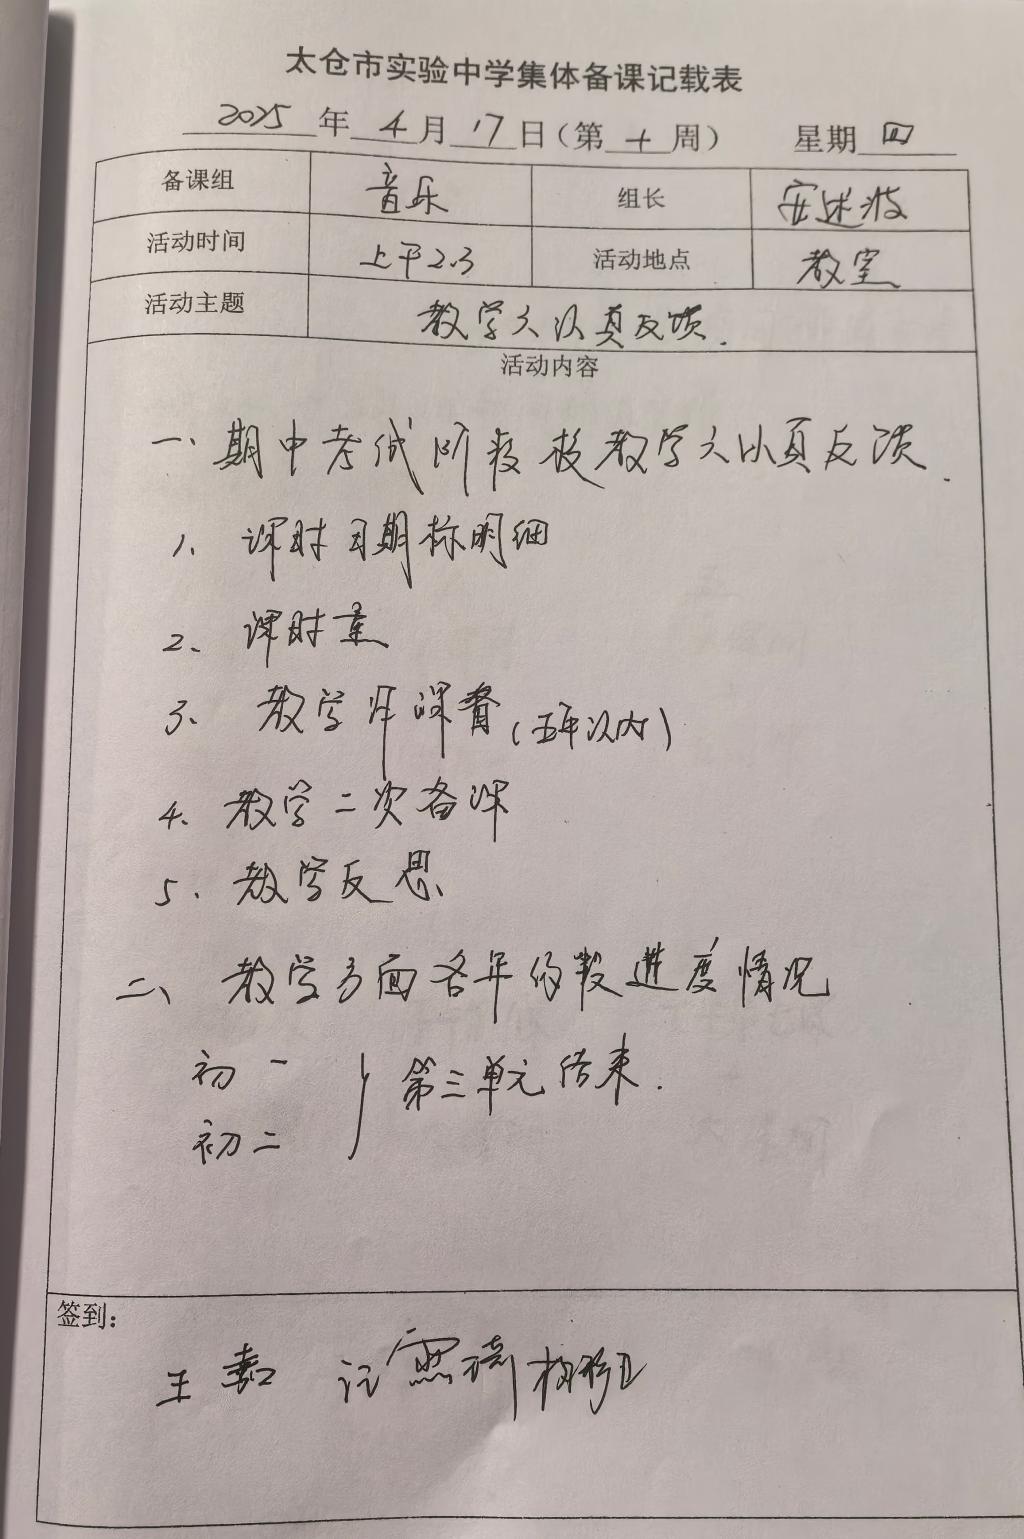 太仓市实验中学集体备课记载表
2025年4月17日(第十周) 星期四
备课组 音乐 组长
活动时间 上午2.3 活动地点 教室
活动主题 教学六认真反馈.
活动内容
一、期中考试阶段 教学六认真反馈.
1、课时 期标明细
2、课时案
3、教学 课 (五年以内)
4、教学二次备课
5、教学反思
二、教学方面各年级 进度情况
初一
第三单元结束.
初二
签到:
王嘉